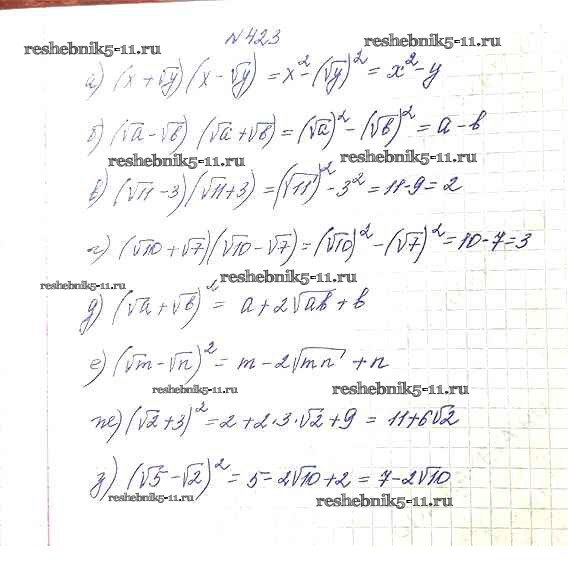 №423
reshebnik5-11.ru reshebnik5-11.ru
а) (x + √y) (x - √y) = x² - (√y)² = x² - y
б) (√a - √b) (√a + √b) = (√a)² - (√b)² = a - b
reshebnik5-11.ru reshebnik5-11.ru
в) (√11 - 3) (√11 + 3) = (√11)² - 3² = 11 - 9 = 2
г) (√10 + √7) (√10 - √7) = (√10)² - (√7)² = 10 - 7 = 3
reshebnik5-11.ru reshebnik5-11.ru
д) (√a + √b)² = a + 2√ab + b
е) (√m - √n)² = m - 2√mn + n
reshebnik5-11.ru reshebnik5-11.ru
ж) (√2 + 3)² = 2 + 2·3·√2 + 9 = 11 + 6√2
з) (√5 - √2)² = 5 - 2√10 + 2 = 7 - 2√10
reshebnik5-11.ru reshebnik5-11.ru